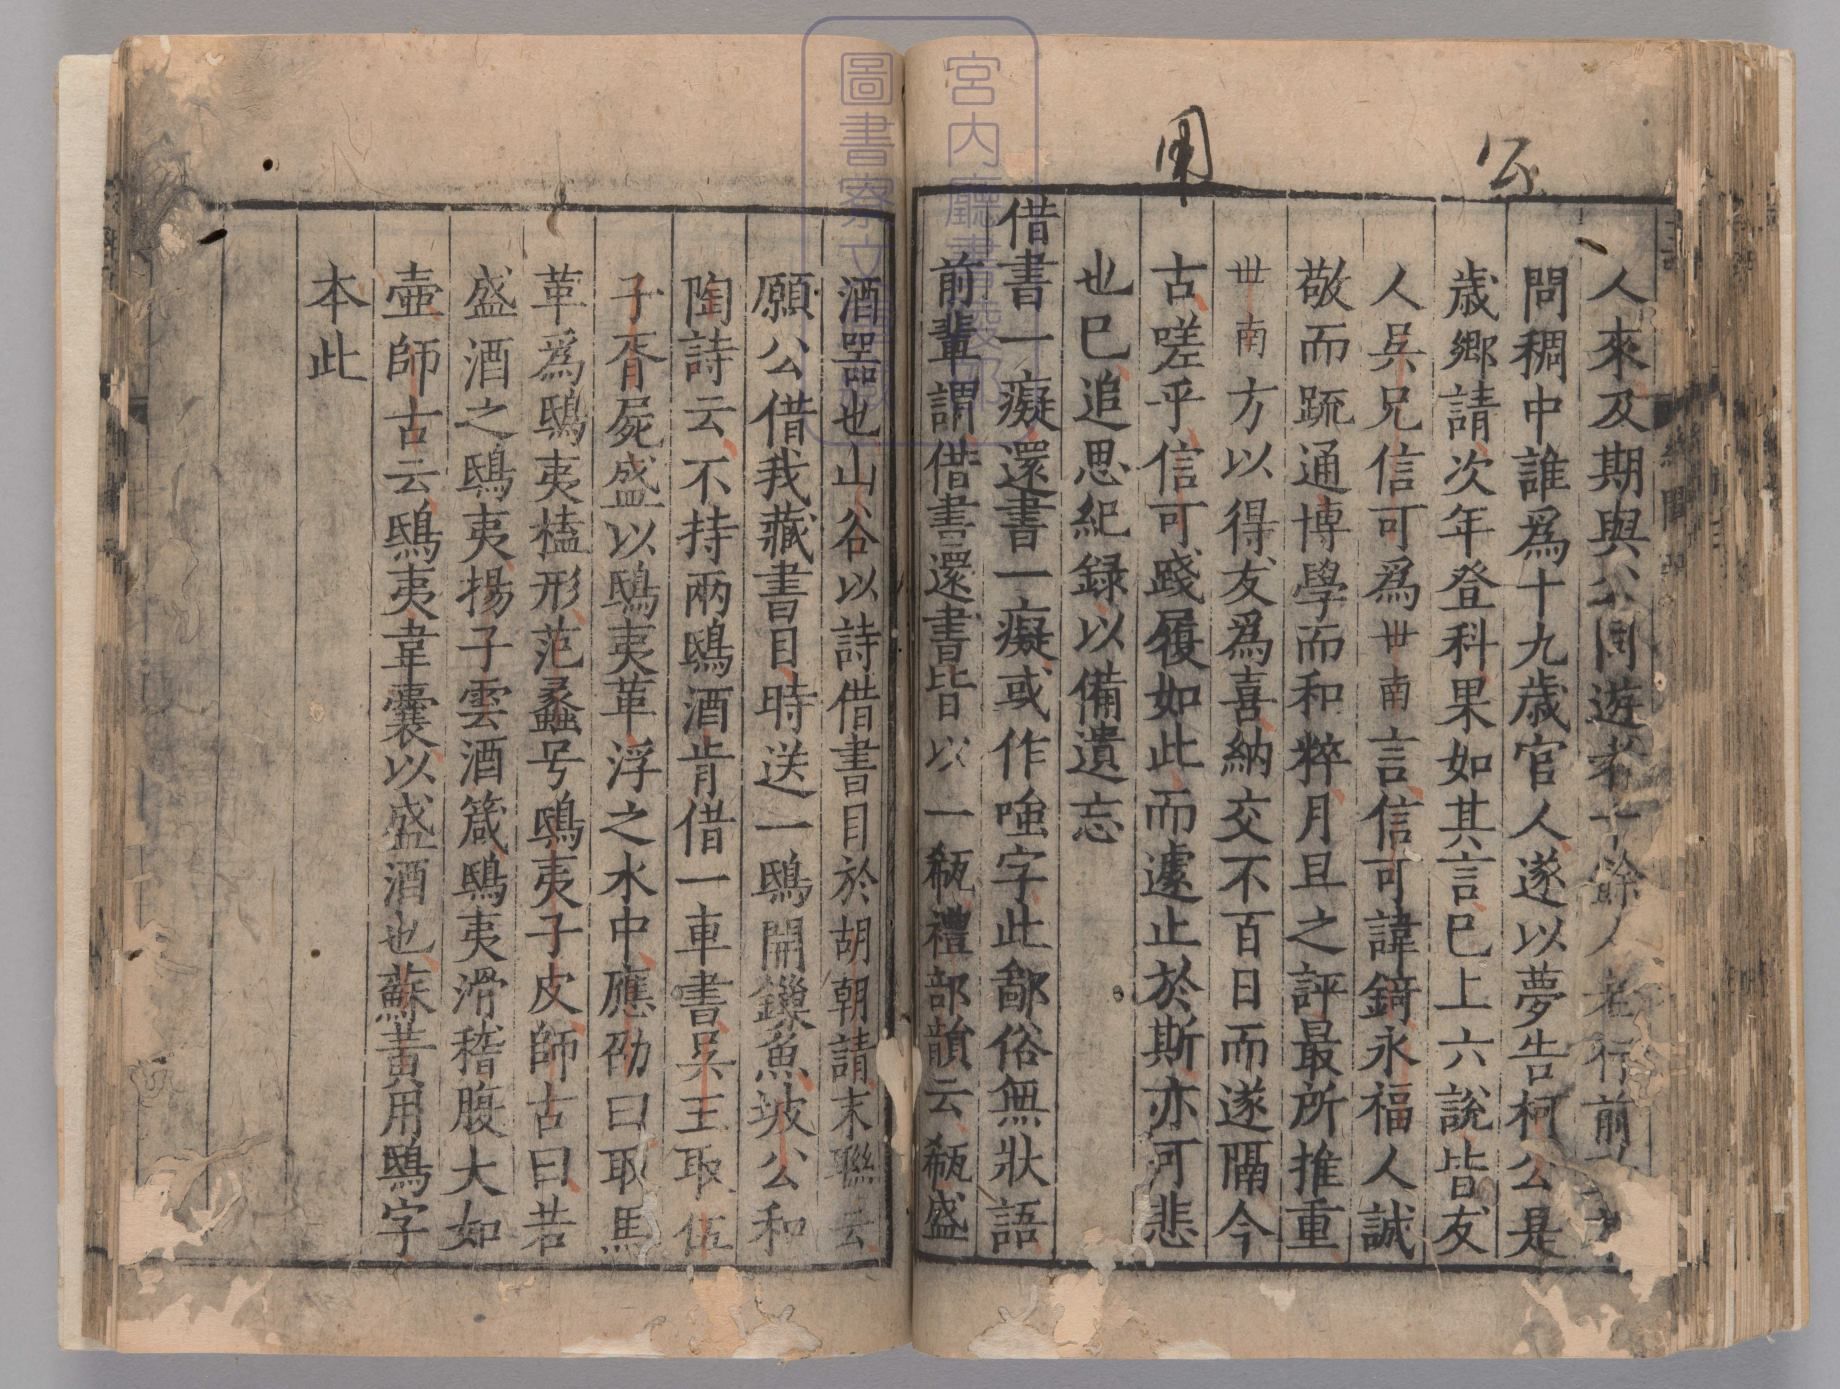 公
周
人來及期與公同遊者十餘人
問稠中誰爲十九歲官人遂以夢告柯公是
歲鄉請次年登科果如其言巳上六說皆友
人吳兄信可爲世南言信可諱錡永福人誠
敬而䟽通博學而和粹月旦之評最所推重
世南方以得友爲喜納交不百日而遂隔今
古嗟乎信可踐履如此而遽止於斯亦可悲
也巳追思紀録以備遺忘
借書一癡還書一癡或作嗤字此鄙俗無狀語
前輩謂借書還書皆以一瓻禮部韻云瓻盛
酒器也山谷以詩借書目於胡朝請末聯云
願公借我藏書目時送一鴟開鏁魚坡公和
陶詩云不持兩鴟酒肯借一車書吳王取伍
子胥屍盛以鴟夷革浮之水中應劭曰取馬
革爲鴟夷榼形范蠡号鴟夷子皮師古曰若
盛酒之鴟夷揚子雲酒箴鴟夷滑稽腹大如
壺師古云鴟夷韋囊以盛酒也蘇黃用鴟字
本此
宮内廳書陵部